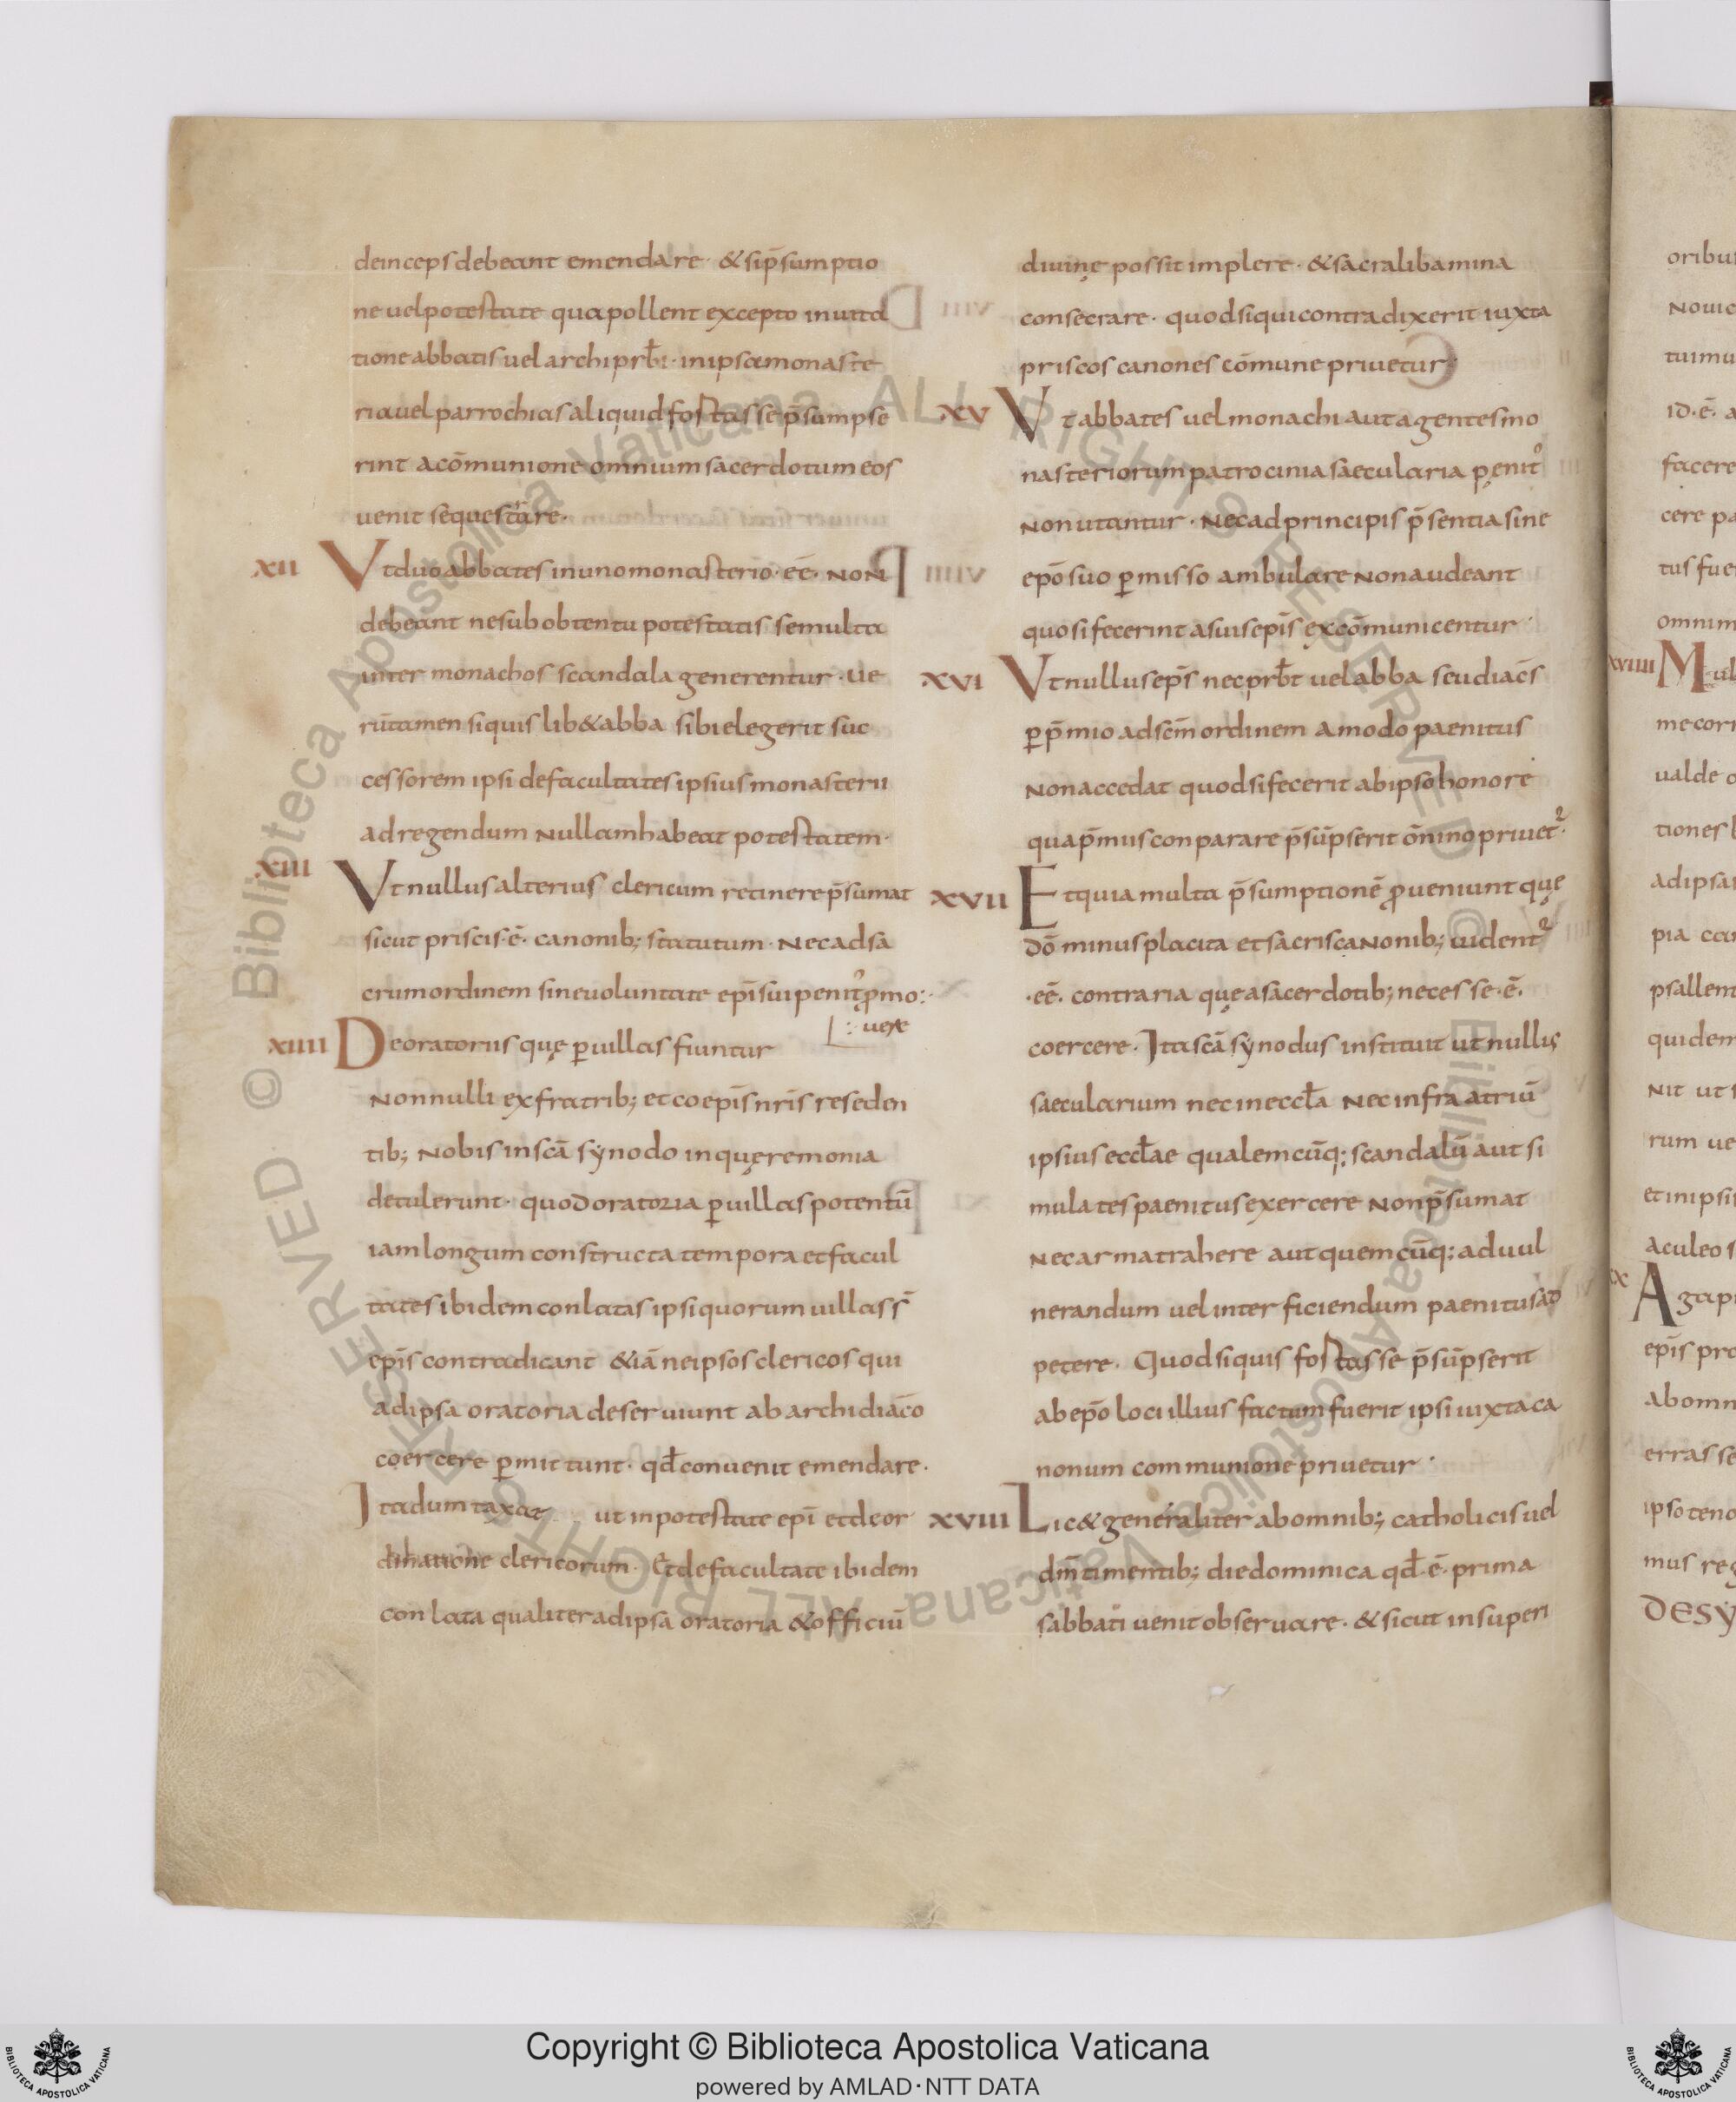 deinceps debeant emendare · & sip̄sumptio
ne uel potestate qua pollent excepto inuita
tione abbatis uel archiprb̄i · in ipsa monaste
ria uel parrochias aliquid fostasse p̄sumpse
rint a cōmunione omnium sacerdotum eos
uenit sequestrare ·
XII Vt duo abbates in uno monasterio · ēē · non
debeant ne sub obtentu potestatis semulta
inter monachos scandala generentur · ue
rūtamen siquis lib& abba sibi elegerit suc
cessorem ipsi de facultates ipsius monasterii
ad regendum nullam habeat potestatem ·
XIII Vt nullus alterius clericum retinere p̄sumat
sicut priscis · ē · canonib; statutum · Nec ad sa
crum ordinem sine uoluntate ep̄i sui penit' p̄mo:
L: uere
XIIII De oratoriis quę p̱ uillas fiuntur
Nonnulli ex fratrib; et coep̄is nr̄is reseden
tib; nobis in scā synodo in quęremonia
detulerunt · quod oratoria p̱ uillas potentū
iam longum constructa tempora et facul
tates ibidem conlatas ipsi quorum uillas s̄
ep̄is contradicant & iā ne ipsos clericos qui
ad ipsa oratoria deseruiunt ab archidiacō
coercere p̱mittunt · qd̄ conuenit emendare ·
Ita dum taxat ut in potestate ep̄i et de or
dinatione clericorum · Et de facultate ibidem
conlata qualiter ad ipsa oratoria & officiū
diuinę possit implere · & sacra libamina
consecrare · quod siqui contradixerit iuxta
priscos canones cōmune priuetur ·
XV Vt abbates uel monachi aut agentes mo
nasteriorum patrocinia saecularia pęnit'
non utantur · Nec ad principis p̄sentia sine
ep̄o suo p̱misso ambulare non audeant
quo si fecerint a suis ep̄is excōmunicentur ·
XVI Vt nullus ep̄s nec prb̄t uel abba seu diac̄s
p̱ p̄mio ad scm̄ ordinem amodo paenitus
non accedat quod si fecerit ab ipso honore
qua p̄mus conparare p̄sūpserit ōnino priuet² ·
XVII Et quia multa p̄sumptionē ꝓueniunt quę
dō minus placita et sacris canonib; uident²
· ēē · contraria quę a sacerdotib; necesse · ē ·
coercere · Ita scā synodus instituit ut nullis
saecularium nec in eccl̄a nec infra atriū
ipsius eccl̄ae qualemcūq; scandalū aut si
mulates paenitus exercere non p̄sumat
nec arma trahere aut quemcūq; ad uul
nerandum uel interficiendum paenitus ad
petere · Quod siquis fostasse p̄sūpserit
ab ep̄o loci illius factum fuerit ipsi iuxta ca
nonum communione priuetur ·
XVIII Lic& generaliter ab omnib; catholicis uel
dn̄m timentib; die dominica qd̄ · ē · prima
sabbati uenit obseruare · & sicut in superi
oribus
id · ē · a
facere
cere pa
tus fue
omnim
XVIIII Mul
me corr
ualde o
tiones
ad ipsa
pia ca
psallent
quidem
nit ut s
rum ue
et in ipsi
aculeo s
Agapi
ep̄is pro
ab omn
erras se
ipso teno
mus reg
DE SY
Copyright © Biblioteca Apostolica Vaticana
powered by AMLAD·NTT DATA